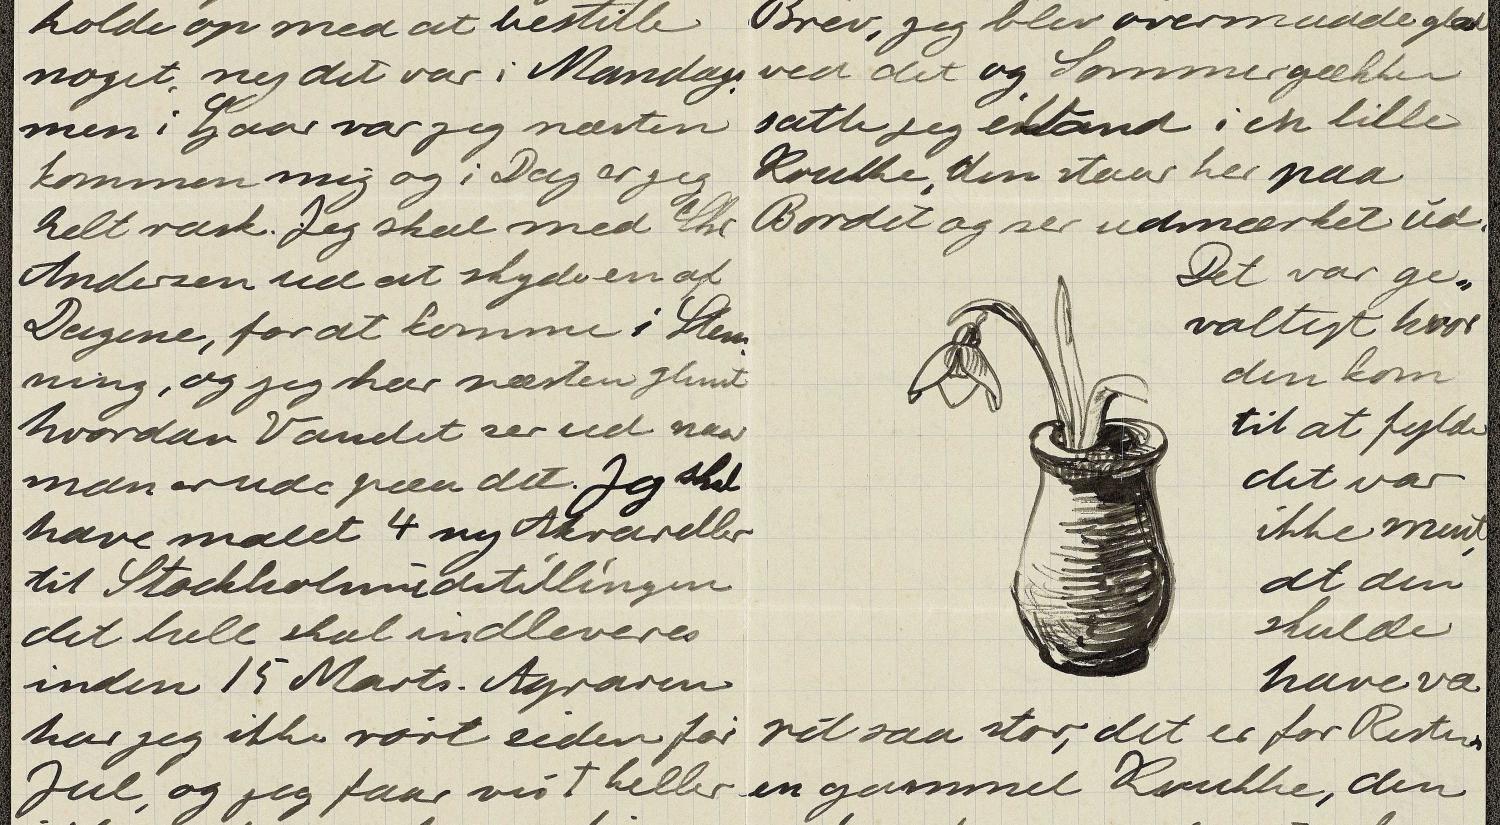 holde op med at bestille
noget, nej det var i Mandags
men i Gaar var jeg næsten
kommen mig og i Dag er jeg
helt rask. Jeg skal med Chr
Andersen ud at skyde en af
Dagene, for at komme i Stem„
ning, og jeg har næsten glemt
hvordan Vandet ser ud naar
man er ude paa det. Jeg skal
have malet 4 ny Akvareller
til Stockholmudstillingen
det hele skal indleveres
inden 15 Marts. Agraren
har jeg ikke rørt siden før
Jul, og jeg faar vist heller
Brev, jeg blev overmaade glad
ved det og Sommergækken
satte jeg i Vand i en lille
Krukke, den staar her paa
Bordet og ser udmærket ud.
Det var ge„
valtigt hvor
den kom
til at fylde
det var
ikke ment,
at den
skulde
have væ
rét saa stor, det er for Resten
en gammel Krukke, den